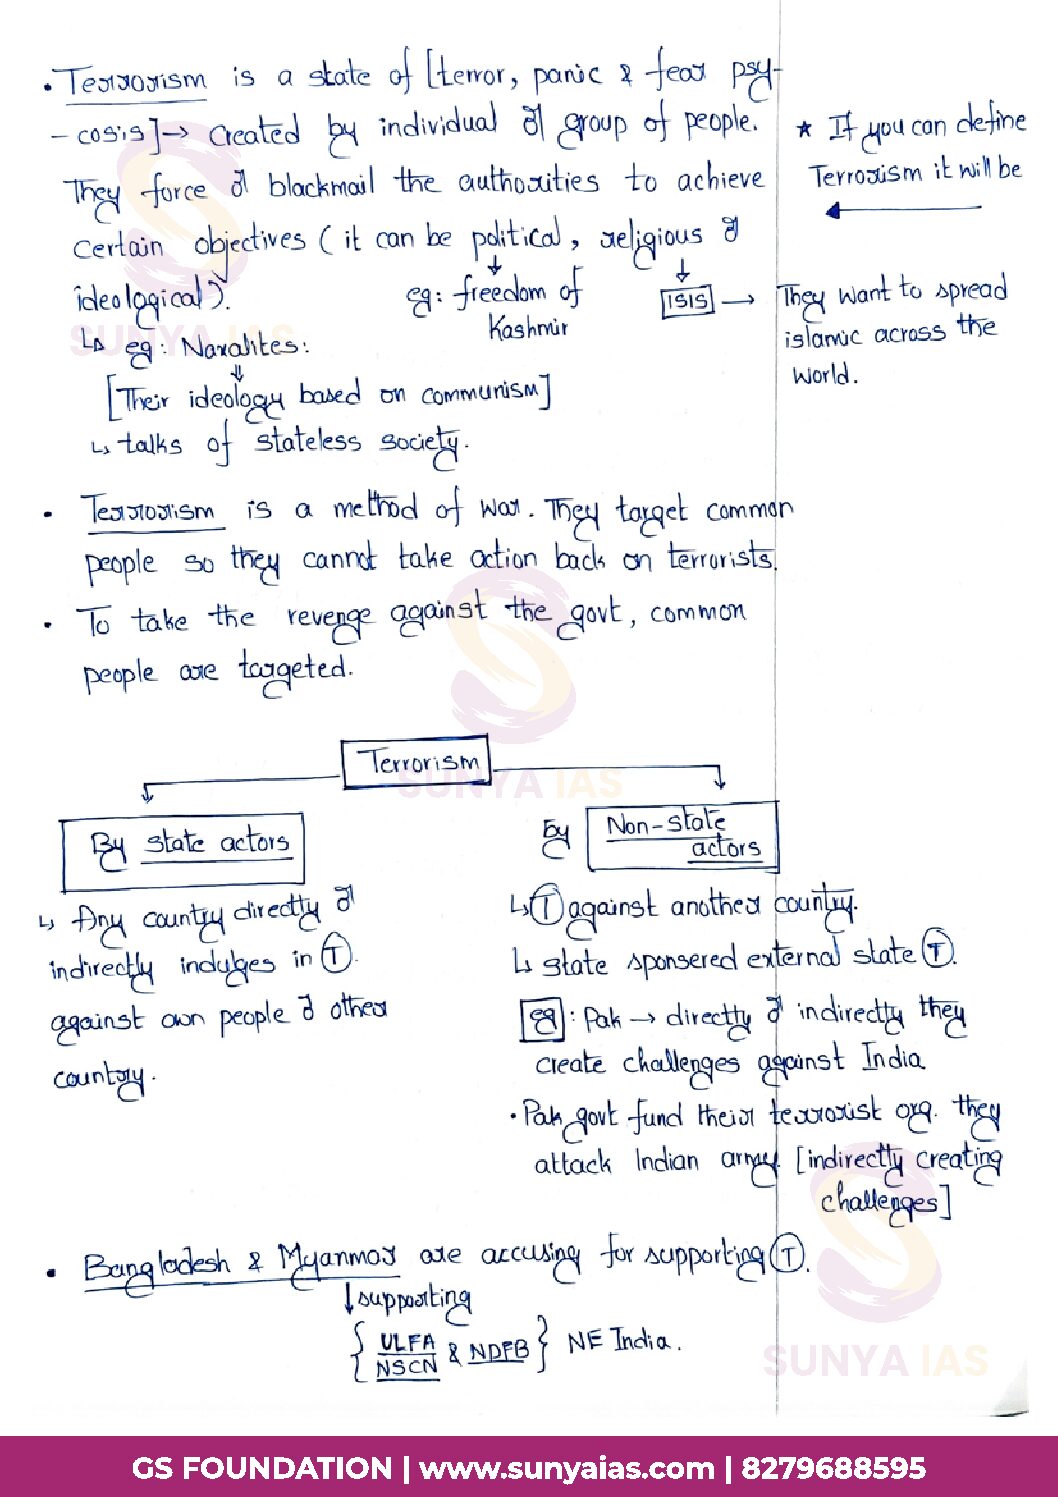 • Terrorism is a state of [terror, panic & fear psy-
- cosis] → Created by individual or group of people.
They force or blackmail the authorities to achieve
certain objectives (it can be political, religious or
ideological).
eg: freedom of
Kashmir
ISIS → They want to spread
islamic across the
World.
★ If you can define
Terrorism it will be
↳ eg: Naxalites:
[Their ideology based on communism]
↳ talks of stateless society.
• Terrorism is a method of war. They target common
people so they cannot take action back on terrorists.
• To take the revenge against the govt, common
people are targeted.
Terrorism
By state actors
↳ Any country directly or
indirectly indulges in (T).
against own people or other
country.
By Non-state
actors
↳ (T) against another country.
↳ state sponsered external state (T).
eg: Pak → directly or indirectly they
create challenges against India
• Pak govt fund their terrorist org. they
attack Indian army. [indirectly creating
challenges]
• Bangladesh & Myanmar are accusing for supporting (T).
↓ supporting
{ ULFA
NSCN & NDFB } NE India.
SUNYA IAS
SUNYA IAS
SUNYA IAS
GS FOUNDATION | www.sunyaias.com | 8279688595